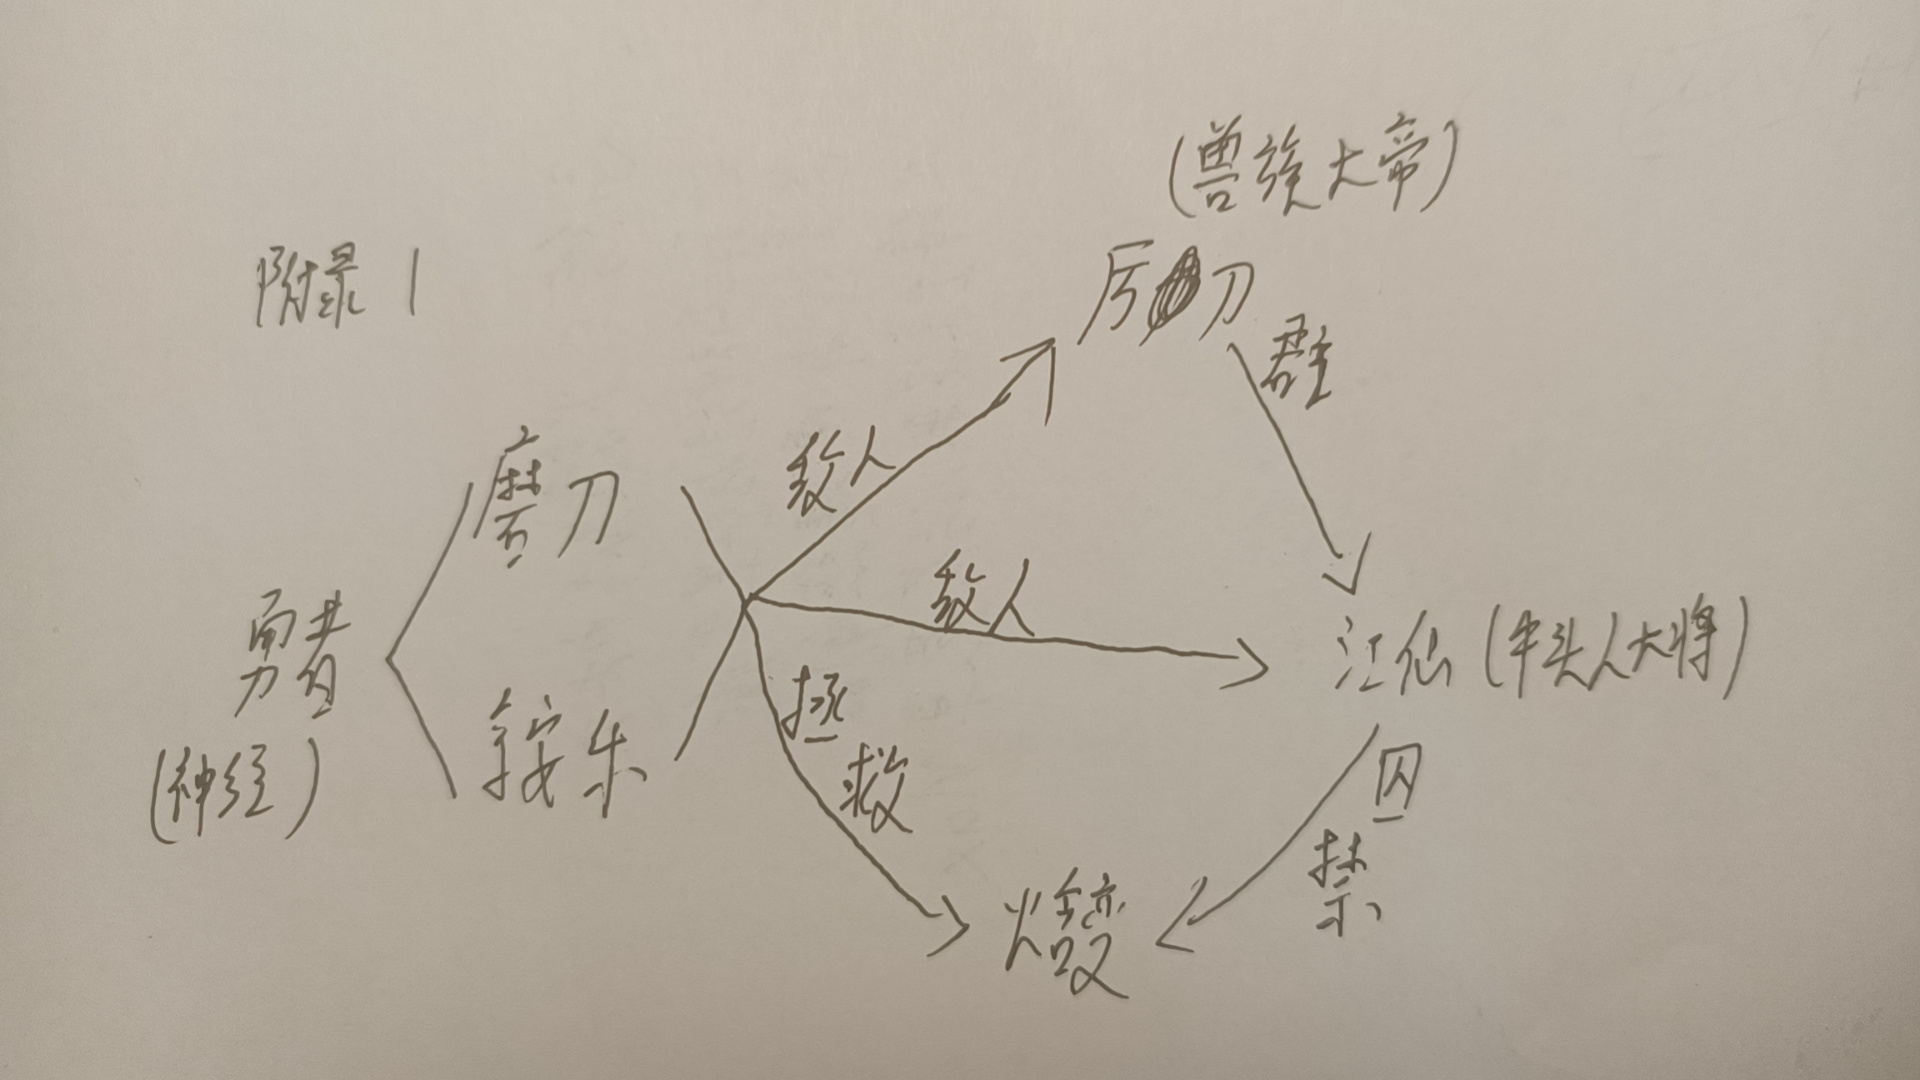 附录1
(兽族大帝)
厉刀
君主
敌人
磨刀
敌人
勇者
江仙(牛头人大将)
鞍乐
(神经)
拯救
囚禁